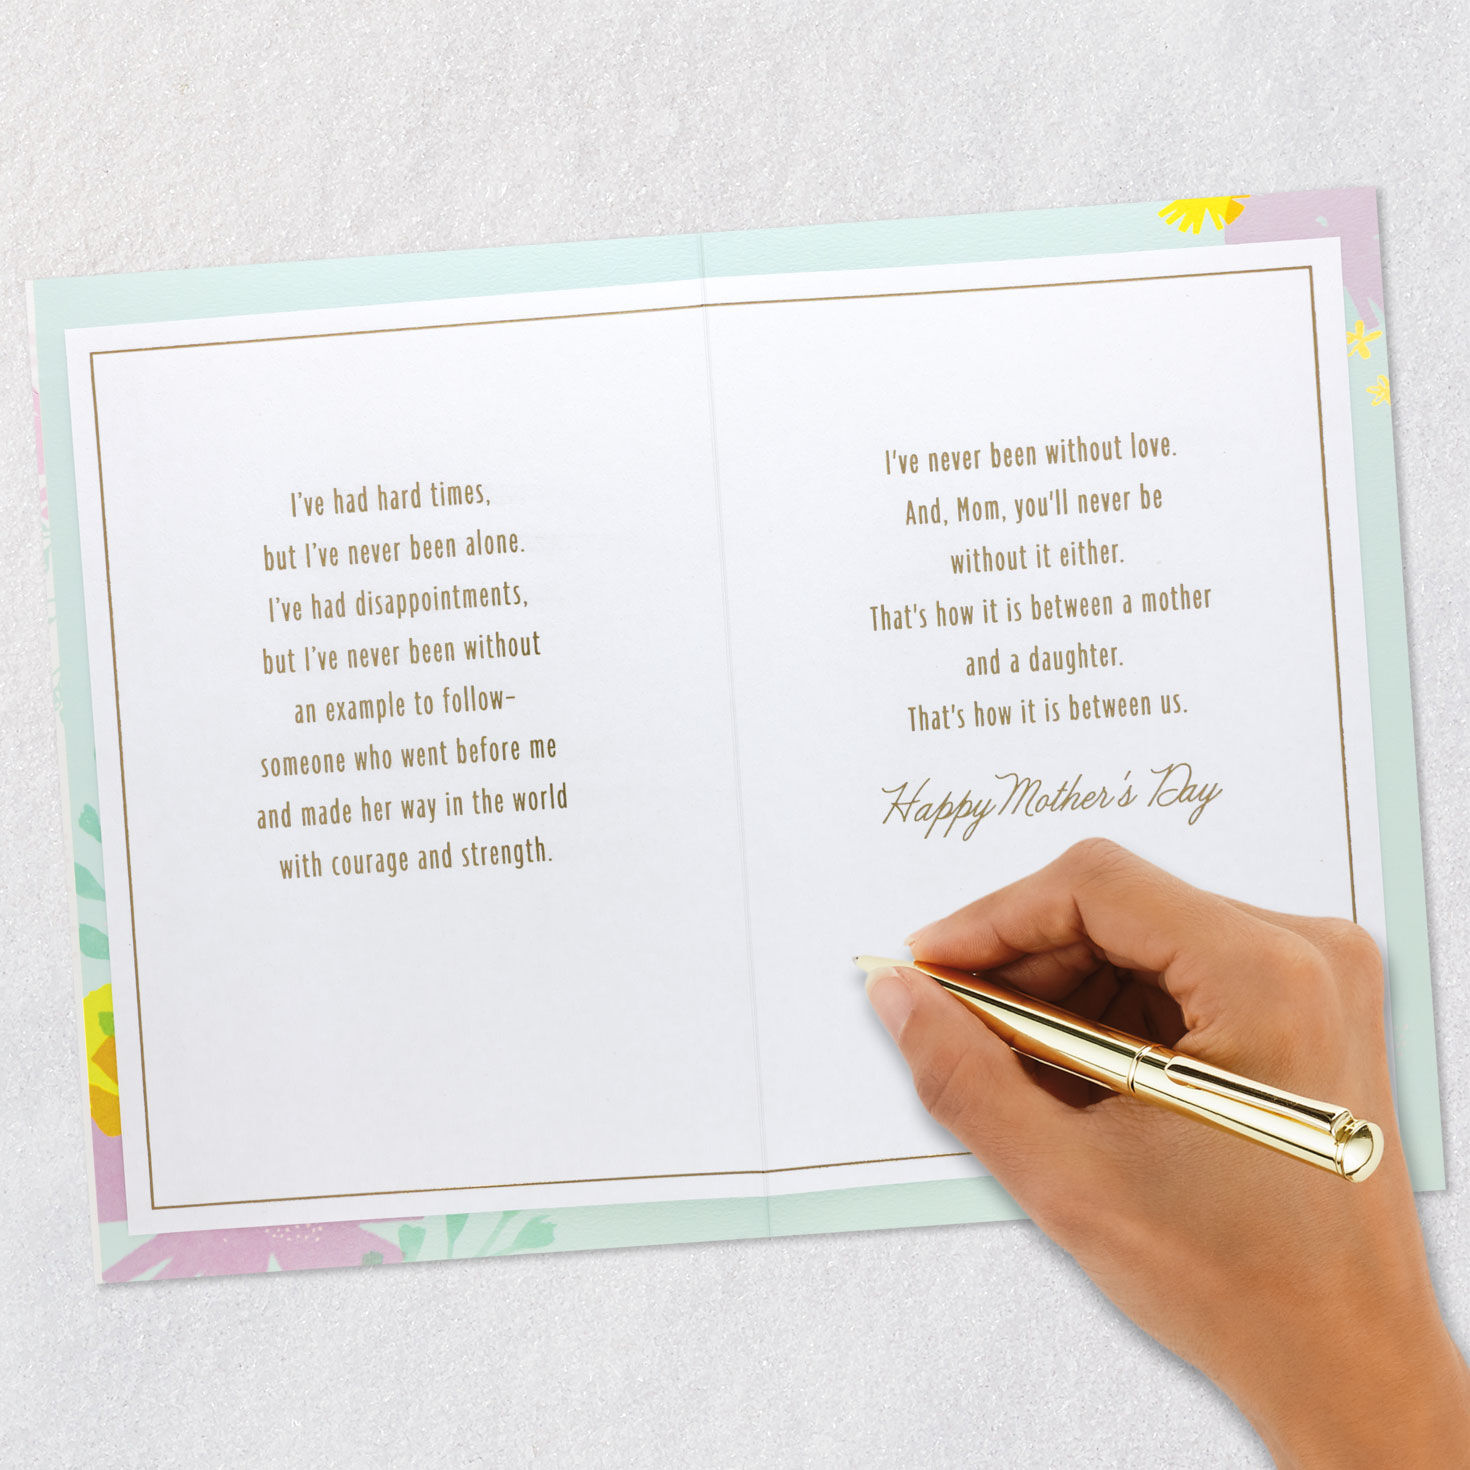 I've had hard times,
but I've never been alone.
I've had disappointments,
but I've never been without
an example to follow–
someone who went before me
and made her way in the world
with courage and strength.
I've never been without love.
And, Mom, you'll never be
without it either.
That's how it is between a mother
and a daughter.
That's how it is between us.
Happy Mother's Day